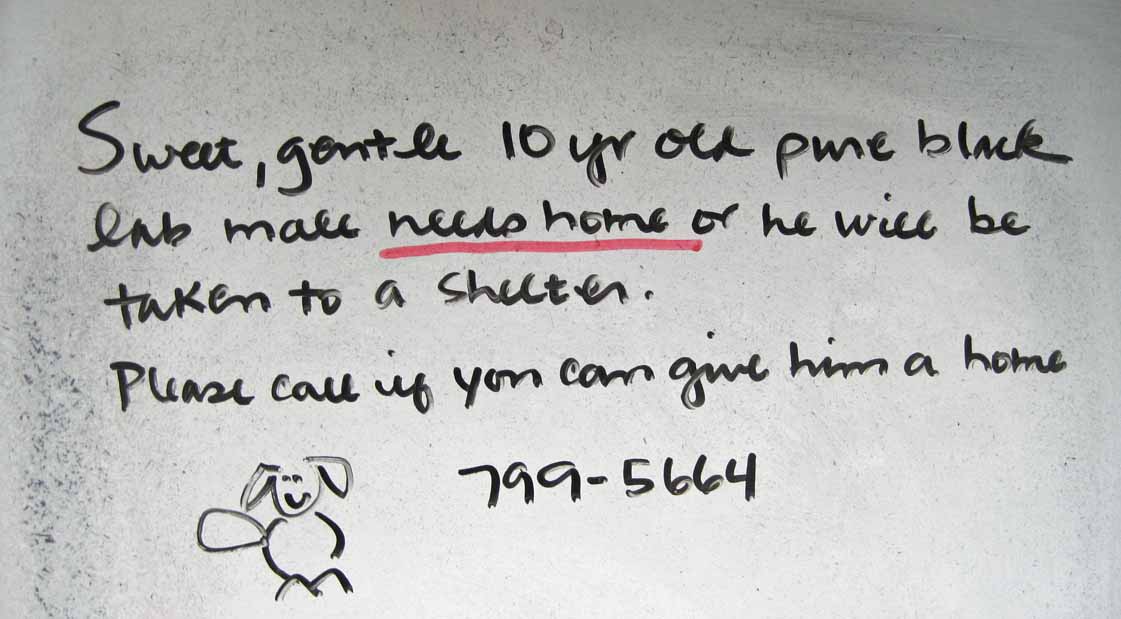 Sweet, gentle 10 yr old pure black
lab male needs home or he will be
taken to a shelter.
Please call if you can give him a home
799-5664